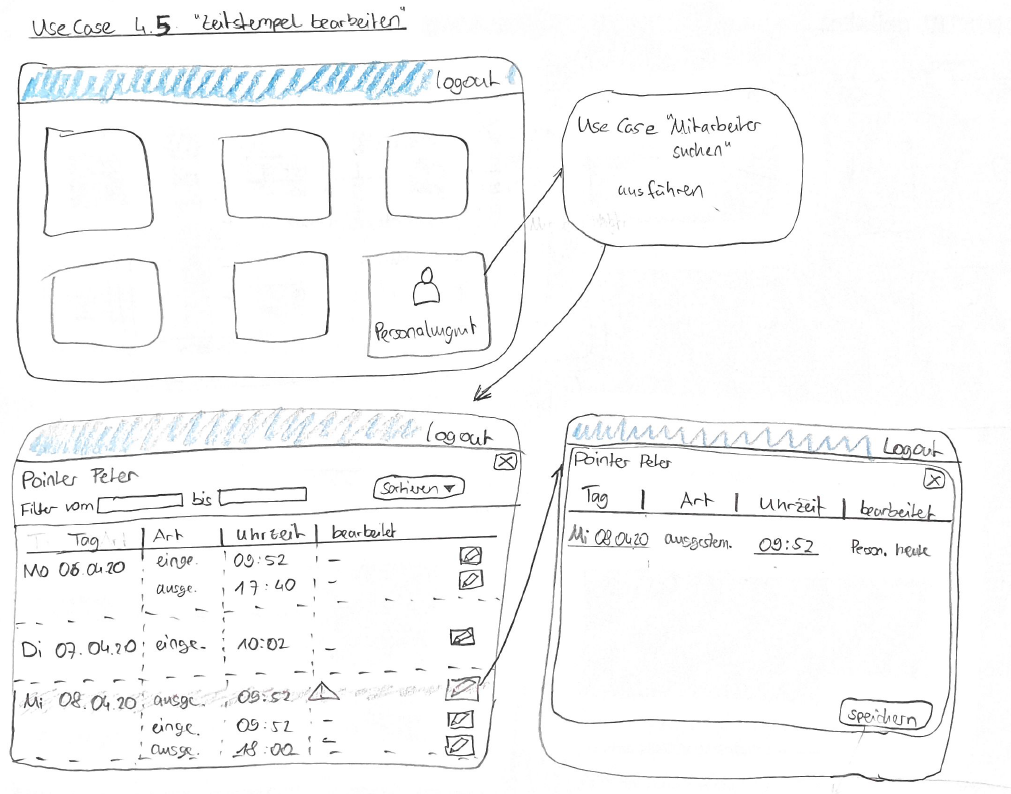 Use Case 4.5 "Zeitstempel bearbeiten"
logout
Use Case "Mitarbeiter
suchen"
ausführen
Personalmgmt
logout
Pointer Peter
Filter vom bis Sortieren
Tag Art Uhrzeit bearbeitet
Mo 06.04.20 einge. 09:52 -
ausge. 17:40 -
Di 07.04.20 einge. 10:02 -
Mi 08.04.20 ausge. 09:52
einge. 09:52 -
ausge. 18:00 -
Logout
Pointer Peter
Tag Art Uhrzeit bearbeitet
Mi 08.04.20 ausgestem. 09:52 Person. heute
speichern